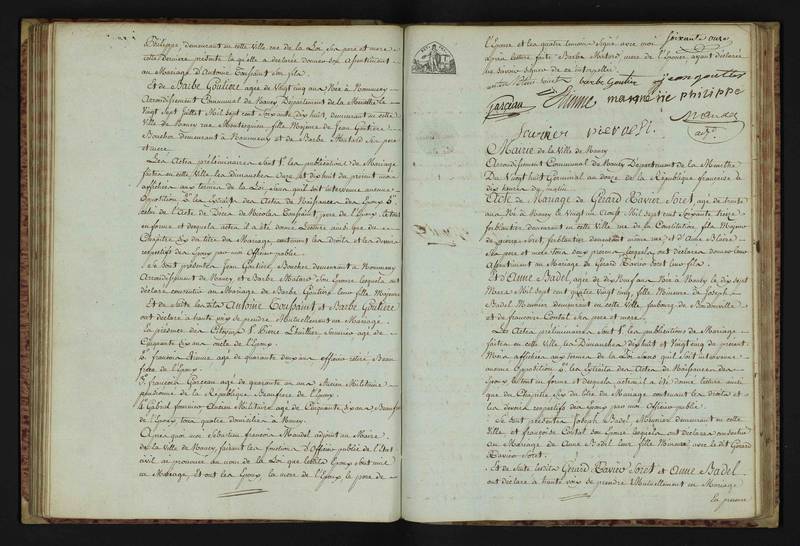 Philippe, demeurant en cette Ville rue de la Loi ses pere et mere
cette derniere presente laquelle a declaré donner son consentement
au Mariage d'Antoine Toussaint son fils
Et de Barbe Goutiere agée de Vingt cinq ans Née à Nommeny
Arrondissement Communal de Nancy Département de la Meurthe le
Vingt Sept Juillet Mil Sept cent Soixante dix huit, demeurant en cette
Ville de Nancy rue Montesquieu fille Majeure de Jean Goutiere
Boucher demeurant à Nommeny et de Barbe Matard ses pere
et mere
Les Actes préliminaires sont 1° les publications de Mariage
faites en cette Ville les dimanches onze et dix huit du présent mois
affichées aux termes de la Loi, sans qu'il soit intervenu aucune
Opposition 2° les Extraits des Actes de Naissances des Epoux 3°
celui de l'Acte de Décès de Nicolas Toussaint, pere de l'Epoux, le tout
en forme et desquels actes il a été donné Lecture ainsi que du
Chapitre Six du titre du Mariage contenant les droits et les devoirs
respectifs des Epoux par moi Officier public
Se sont présentés Jean Goutiere, Boucher demeurant à Nommeny
Arrondissement de Nancy et Barbe Matard son Epouse lesquels ont
déclaré consentir au Mariage de Barbe Goutiere leur fille Majeure
Et de Suite lesdits Antoine Toussaint et Barbe Goutiere
ont déclaré à haute voix se prendre Mutuellement en Mariage
En présence des Citoyens 1° Pierre Lhuillier, Serrurier agé de
Cinquante Six ans oncle de l'Epoux
2° françois Etienne agé de quarante deux ans officier retiré Beau
frere de l'Epoux
3° françois Garceau agé de quarante un ans Ancien Militaire
de la République Beaufrere de l'Epoux
4° Gabriel fournier Ancien Militaire agé de Cinquante Six ans Beaufrere
de l'Epoux, tous quatre domiciliés à Nancy
Après quoi moi Sébastien françois Mandel adjoint au Maire
de la Ville de Nancy, faisant les fonctions d'Officier public de l'Etat
civil ai prononcé au nom de la Loi que lesdits Epoux sont unis
en Mariage, Et ont les Epoux, la mere de l'Epoux le pere de
l'Epouse et les quatre témoins Signé avec moi
Soixante onze
après lecture faite Barbe Matard mere de l'Epouse, ayant déclaré
ne savoir Signer de ce interpellée
barbe Goutier jean goutier
Garceau Etienne marguerite philippe
fournier Mandel
adj.
Mairie de la Ville de Nancy
Arrondissement Communal de Nancy Département de la Meurthe
Du Vingt huit Germinal an douze de la République française à
dix heures du matin
Acte de Mariage de Gérard Xavier Soret, agé de trente
ans Né à Nancy le Vingt un Août Mil Sept cent Soixante treize
ferblantier demeurant en cette Ville rue de la Constitution, fils Majeur
de george Soret, ferblantier demeurant même rue et d'Anne Blaise
Ses pere et mere tous deux présens lesquels ont déclaré donner leur
Consentement au Mariage de Gérard Xavier Soret leur fils
Et d'Anne Badel, agée de dix Neuf ans Née à Nancy le dix Sept
Mars Mil Sept cent quatre Vingt cinq, fille Mineure de Joseph
Badel Meunier demeurant en cette Ville faubourg de Boudonville
et de françoise Contal Ses pere et mere
Les Actes préliminaires Sont 1° les publications de Mariage
faites en cette Ville les Dimanches dix huit et Vingt cinq du présent
Mois affichées aux termes de la Loi Sans qu'il Soit intervenu
aucune Opposition 2° les Extraits des Actes de Naissances des
Epoux le tout en forme et desquels actes il a été donné lecture ainsi
que du Chapitre Six du titre du Mariage contenant les droits et
les devoirs respectifs des Epoux par moi Officier public
Se sont présentés Joseph Badel, Meunier demeurant en cette
Ville et françoise Contal son Epouse lesquels ont déclaré consentir
au Mariage de Anne Badel leur fille Mineure avec le dit Gérard
Xavier Soret
Et de Suite lesdits Gérard Xavier Soret et Anne Badel
ont déclaré à haute voix se prendre Mutuellement en Mariage
En présence